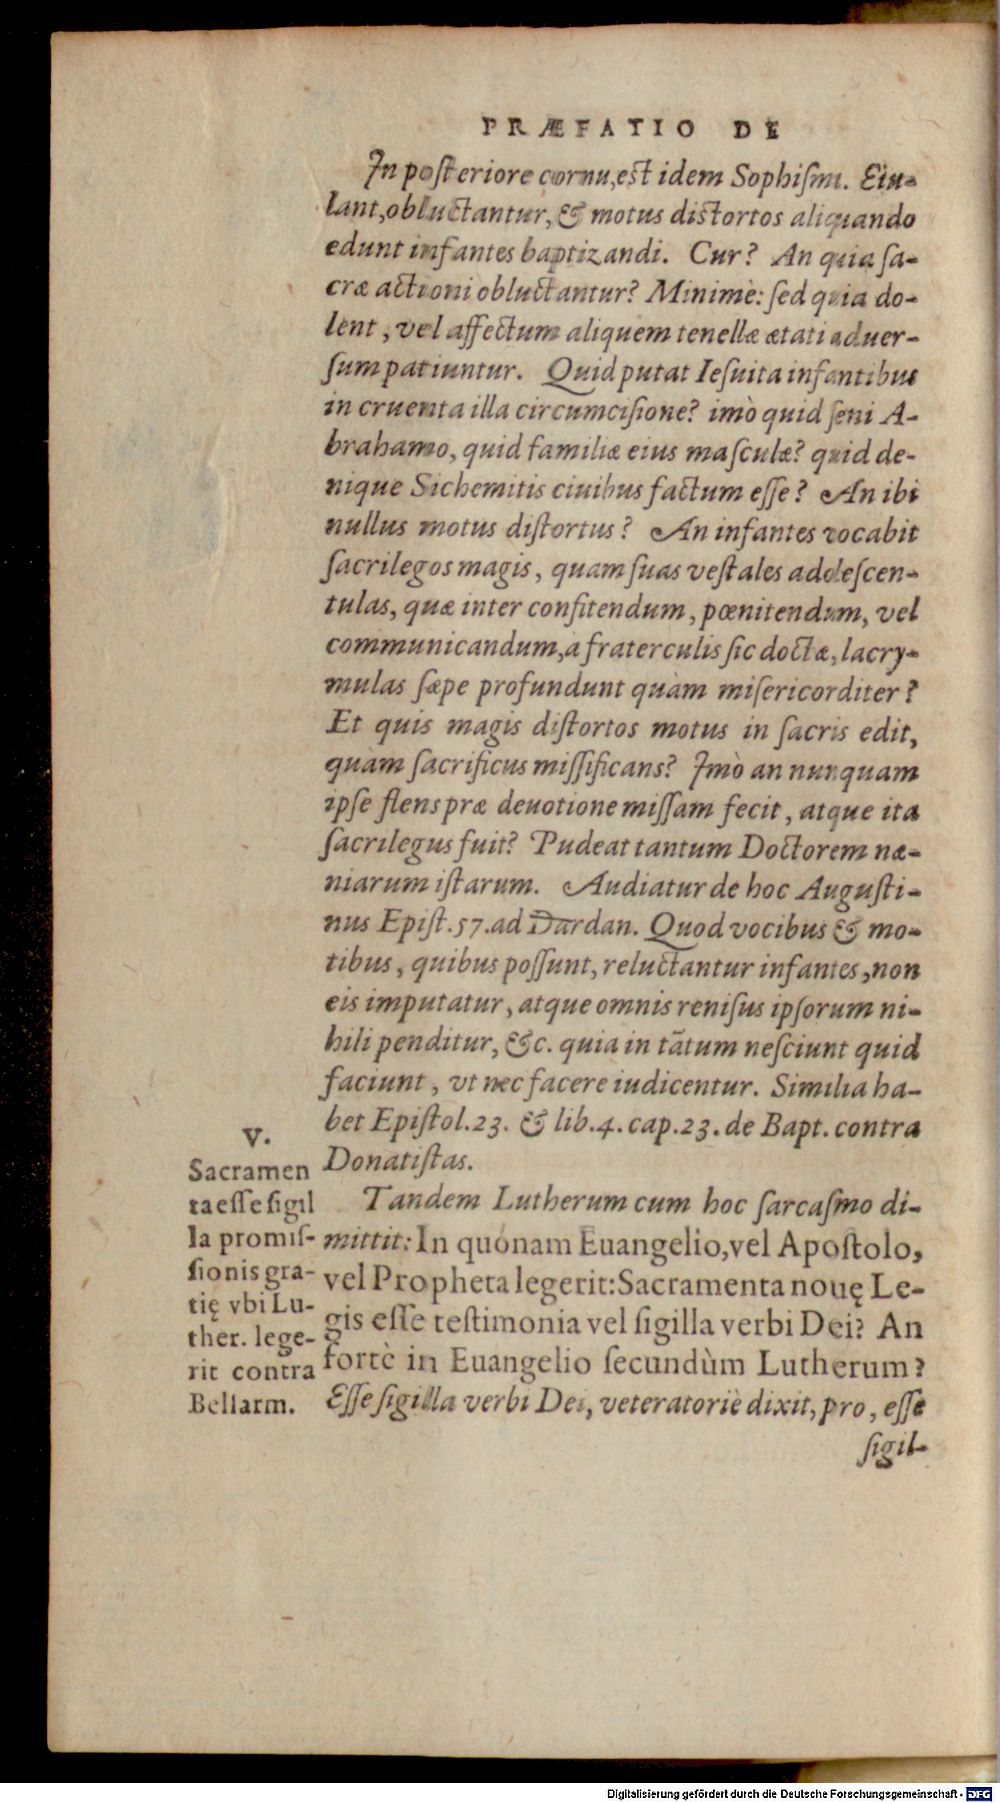 PRÆFATIO DE
In poſteriore cornu, est idem Sophiſmi. Eiu-
lant, obluctantur, & motus distortos aliquando
edunt infantes baptizandi. Cur? An quia ſa-
cræ actioni obluctantur? Minimè: ſed quia do-
lent, vel affectum aliquem tenellæ ætati aduer-
ſum patiuntur. Quid putat Ieſuita infantibus
in cruenta illa circumciſione? imò quid ſeni A-
brahamo, quid familiæ eius maſculæ? quid de-
nique Sichemitis ciuibus factum eſſe? An ibi
nullus motus diſtortus? An infantes vocabit
ſacrilegos magis, quam ſuas veſtales adoleſcen-
tulas, quæ inter confitendum, pœnitendum, vel
communicandum, a fraterculis ſic doctæ, lacry-
mulas ſæpe profundunt quàm miſericorditer?
Et quis magis diſtortos motus in ſacris edit,
quàm ſacrificus miſſificans? Imò an nunquam
ipſe flens præ deuotione miſſam fecit, atque ita
ſacrilegus fuit? Pudeat tantum Doctorem næ-
niarum iſtarum. Audiatur de hoc Auguſti-
nus Epiſt. 57. ad Dardan. Quod vocibus & mo-
tibus, quibus poſſunt, reluctantur infantes, non
eis imputatur, atque omnis reniſus ipſorum ni-
hili penditur, &c. quia in tātum neſciunt quid
faciunt, vt nec facere iudicentur. Similia ha-
bet Epiſtol. 23. & lib. 4. cap. 23. de Bapt. contra
Donatiſtas.
V.
Sacramen
ta eſſe ſigil
la promiſ-
ſionis gra-
tię vbi Lu-
ther. lege-
rit contra
Bellarm.
Tandem Lutherum cum hoc ſarcaſmo di-
mittit: In quónam Euangelio, vel Apoſtolo,
vel Propheta legerit: Sacramenta nouę Le-
gis eſſe teſtimonia vel ſigilla verbi Dei? An
fortè in Euangelio ſecundùm Lutherum?
Eſſe ſigilla verbi Dei, veteratoriè dixit, pro, eſſe
ſigil-
Digitalisierung gefördert durch die Deutsche Forschungsgemeinschaft - DFG